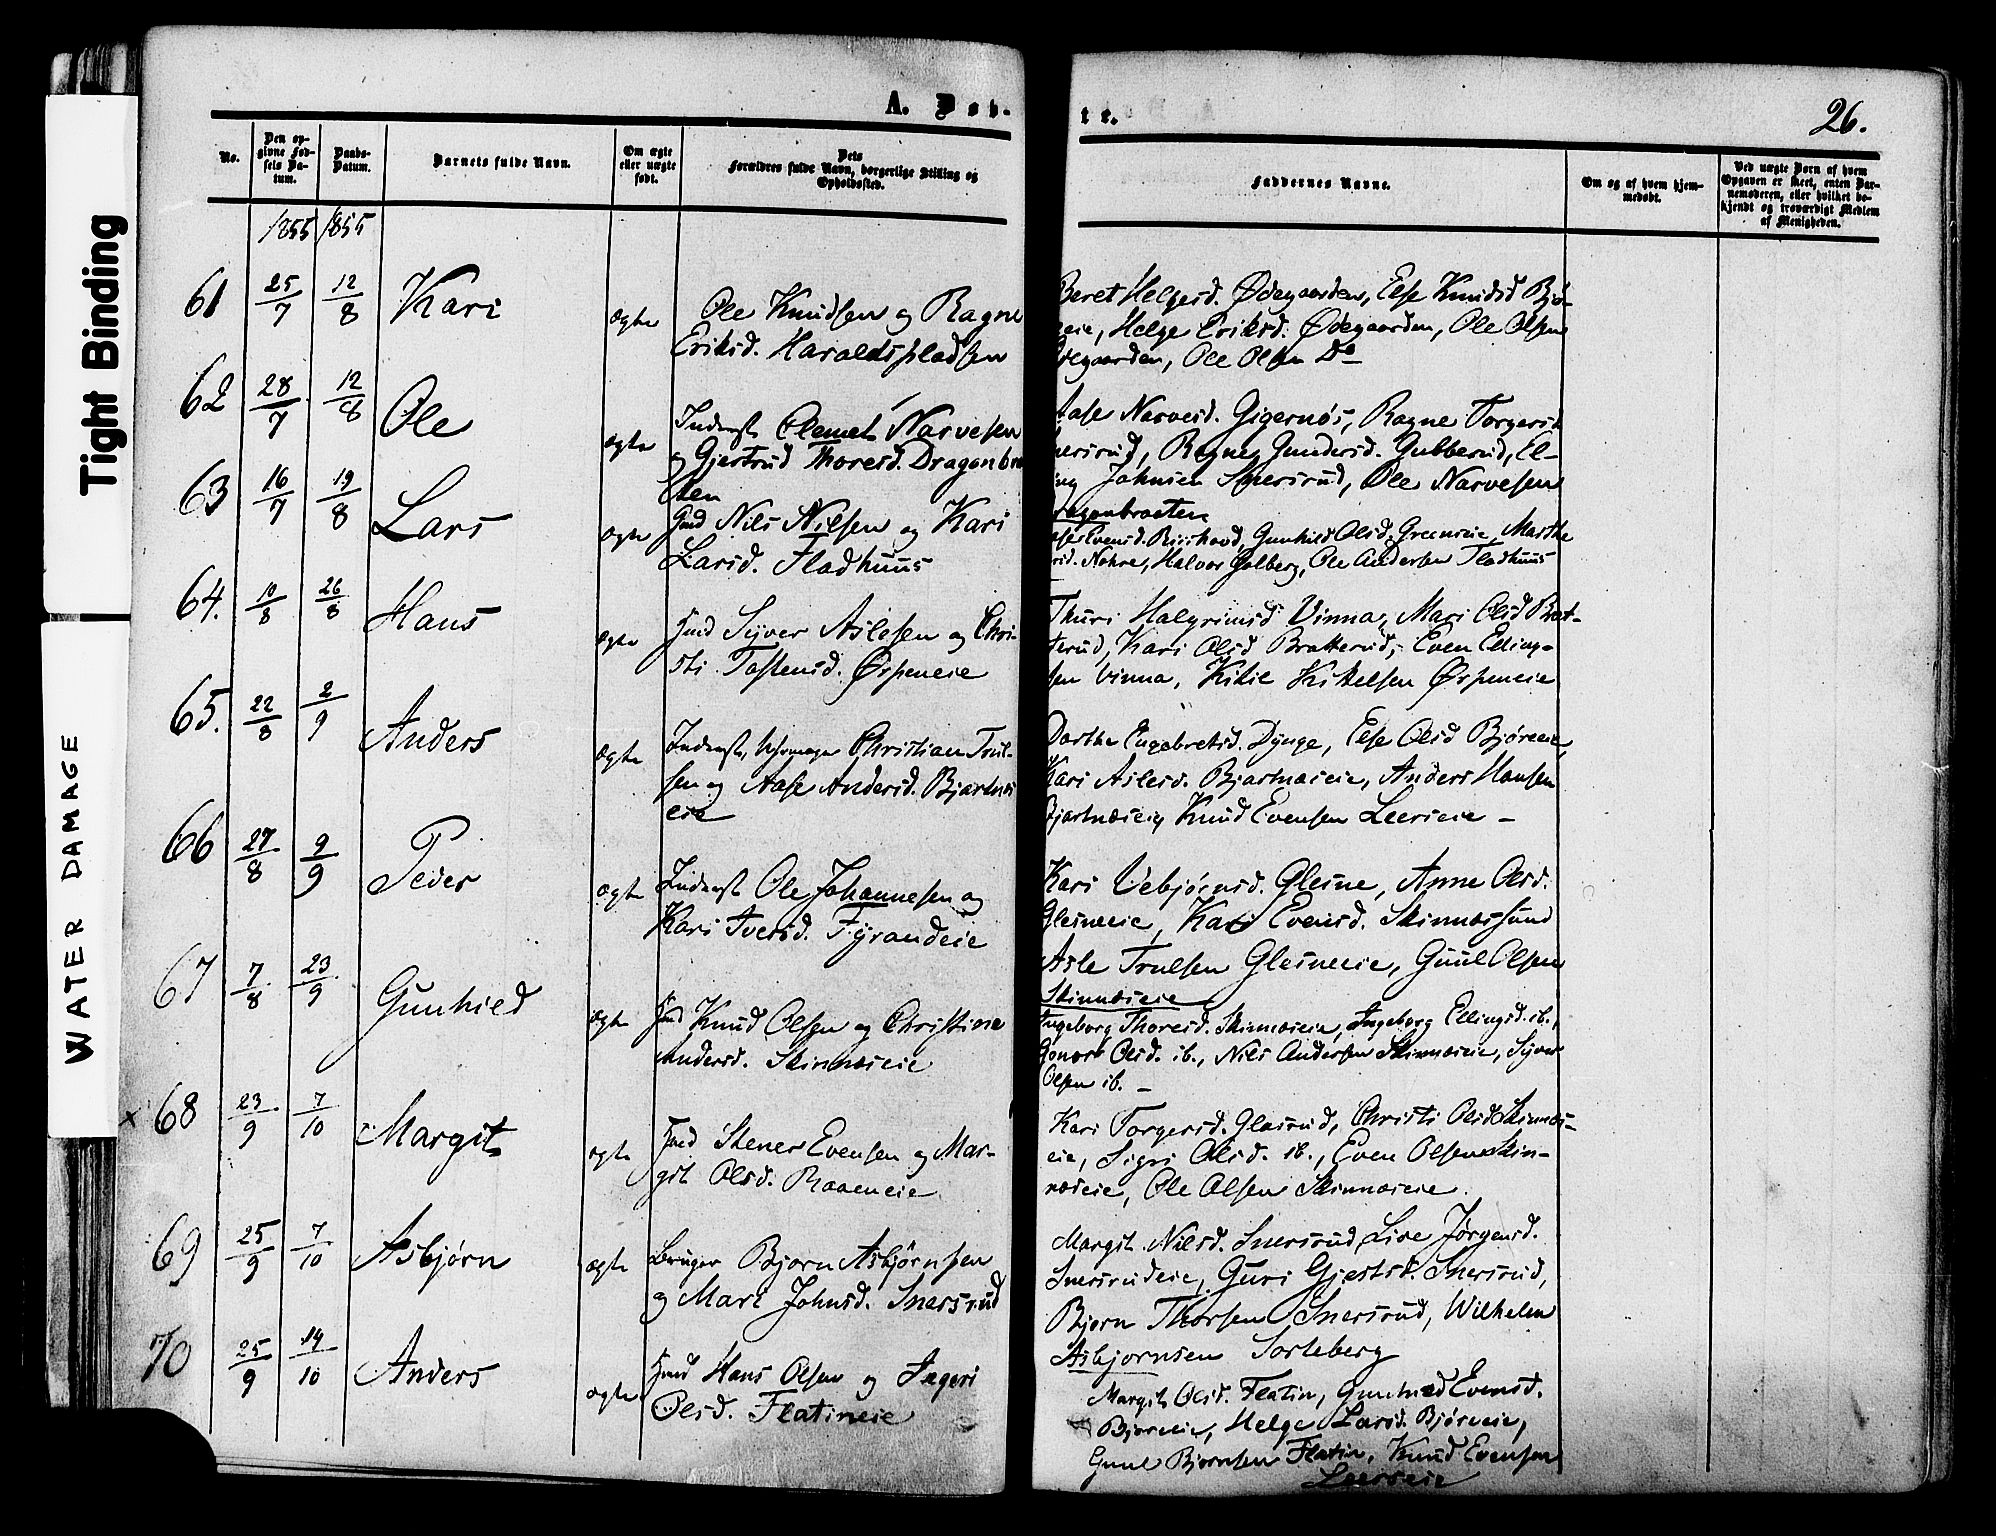 Tight Binding
WATER DAMAGE
A. Døb-
te.
26.
No.
Den op-
givne Fød-
sels Da-
tum.
Daabs-
Datum.
Barnets fulde Navn.
Om ægte
eller uægte
født.
Dets
Forældres fulde Navn, borgerlige Stilling og
Opholdssted.
Faddernes Navne.
Om og af hvem hjem-
medøbt.
Ved uægte Børn af hvem
Opgaven er skeet, enten Bar-
nemoderen, eller hvilket be-
kjendt og troværdigt Medlem
af Menigheden.
1855 1855
61 25/7 12/8 Kari ægte
Ole Knudsen og Ragne
Eriksd. Haraldspladsen
Beret Helgesd. Ødegaarden, Else Knudsd Bjø-
eie, Helge Eriksd. Ødegaarden, Ole Olsen
degaarden, Ole Olsen Do
62 28/7 12/8 Ole ægte
Inderst Clemet Narvesen
og Gjertrud Thoresd. Dragonbra
sten
Aase Narvesd. Gigernøs, Ragne Torgersd
nersrud, Ragne Gundersd. Gubberud, El-
ing Johnsen Snersrud, Ole Narvesen
ragonbraaten
63 16/7 19/8 Lars ægte
Gmd Nils Nilsen og Kari
Larsd. Fladhuus
Evensd. Gunhild Olsd. Greenseie, Marthe
Nohre, Halvor Golberg, Ole Andersen Fladhuus
64. 10/8 26/8 Hans ægte
Hmd Syver Aslesen og Chri-
sti Tostensd. Ørpeneie
Thuri Halgrimsd Vinna, Mari Olsd Brat-
terud, Kari Olsd Bratterud, Even Elling-
sen Vinna, Kittil Kittelsen Ørpeneie
65. 22/8 2/9 Anders ægte
Inderst, Uhrmager Christian Trul-
sen og Aase Andersd. Bjertnæs
eie
Dorthe Engebretsd. Dynge, Else Olsd Bjøreeie,
Kari Aslesd. Bjertnæseie, Anders Hansen
Bjertnæseie, Knud Evensen Leerseie -
66 27/8 9/9 Peder ægte
Inderst Ole Johannesen og
Kari Iversd. Fyrandeie
Kari Vebjørnsd. Glesne, Anne Olsd.
Glesneeie, Kari Evensd. Skinnæssund
Asle Trulsen Glesneeie, Guul Olsen
Skinnæseie
67 7/8 23/9 Gunhild ægte
Hmd Knud Olsen og Christine
Andersd. Skinnæseie
Ingeborg Thoresd. Skinnæseie, Ingeborg Ellingsd. ib.,
Gonor Olsd. ib., Nils Andersen Skinnæseie, Syver
Olsen ib. -
x 68 23/9 7/10 Margit ægte
Hmd Stener Evensen og Mar-
git Olsd. Raaeneie
Kari Torgersd. Glasrud, Christi Olsd Skinnæs-
eie, Sigri Olsd. ib., Even Olsen Skin-
næseie, Ole Olsen Skinnæseie.
69 25/9 7/10 Asbjørn ægte
Bruger Bjorn Asbjørnsen
og Mari Johnsd. Snersrud
Margit Nilsd. Snersrud, Live Jørgensd.
Snersrudeie, Guri Gjertsd. Snersrud,
Bjorn Thorsen Snersrud, Wilhelm
Asbjornsen Sorteberg
70 25/9 14/10 Anders ægte
Hmd Hans Olsen og Ingeri
Olsd. Flatineie
Margit Olsd. Flatin, Gunhild Evensd.
Bjoreeie, Helge Larsd. Bjøreeie,
Guul Bjornsen Flatin, Knud Evensen
Leerseie